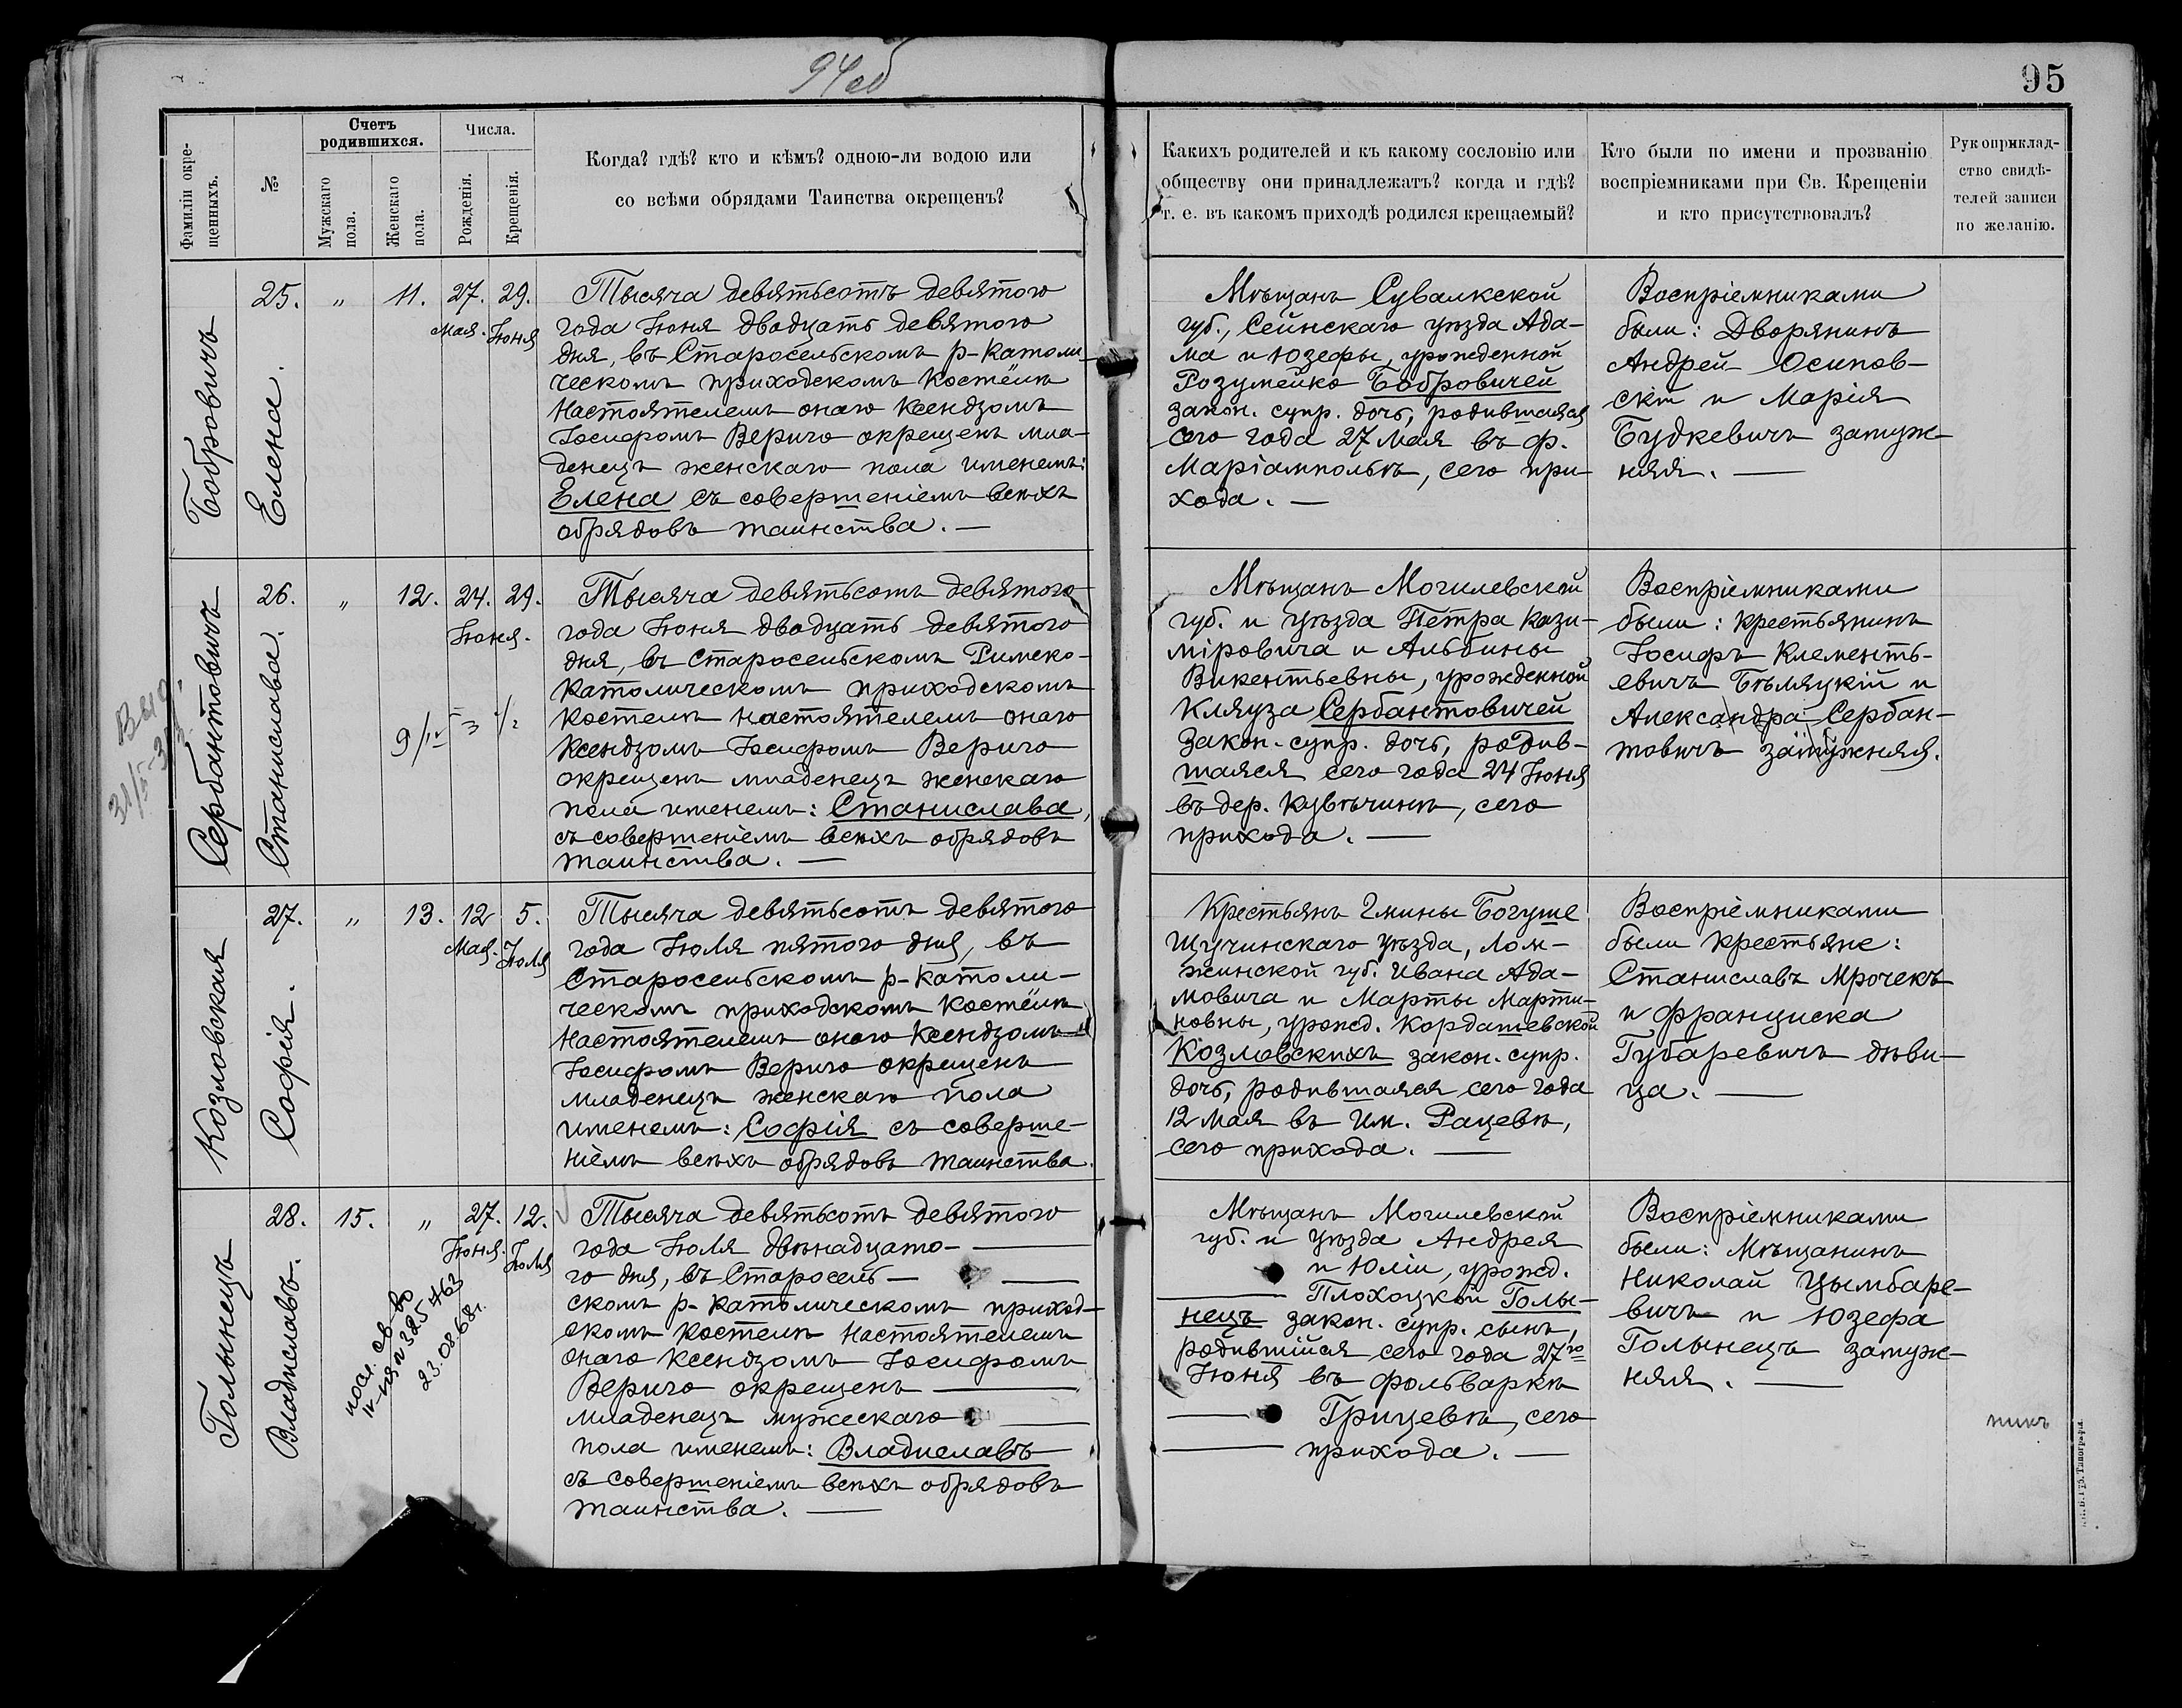 94об
95
Фамиліи окре-
щенныхъ.
№
Счетъ
родившихся.
Мужскаго
пола.
Женскаго
пола.
Числа.
Рожденія.
Крещенія.
Когда? гдѣ? кто и кѣмъ? одною-ли водою или
со всѣми обрядами Таинства окрещенъ?
Какихъ родителей и къ какому сословію или
обществу они принадлежатъ? когда и гдѣ?
т. е. въ какомъ приходѣ родился крещаемый?
Кто были по имени и прозванію
воспріемниками при Св. Крещеніи
и кто присутствовалъ?
Рукоприклад-
ство свидѣ-
телей записи
по желанію.
Бобровичъ
25.
Елена.
"
11.
27.
Мая.
29.
Іюня
Тысяча девятьсотъ девятого
года Іюня двадцать девятого
дня, въ Старосельскомъ р-католи-
ческомъ приходскомъ костёлѣ
Настоятелемъ онаго Ксендзомъ
Іосифомъ Вериго окрещенъ мла-
денецъ женскаго пола именемъ:
Елена съ совершеніемъ всѣхъ
обрядовъ таинства. —
Мѣщанъ Сувалкской
губ., Сейнскаго уѣзда Ада-
ма и Юзефы, урожденной
Розумейко Бобровичей
закон. супр. дочь, родившаяся
сего года 27 мая въ ф.
Маріамполѣ, сего при-
хода. —
Воспріемниками
были: Дворянинъ
Андрей Осипов-
скій и Марія
Будкевичъ замуж-
няя. —
Сербантовичъ
26.
Станислава.
"
12.
24.
29.
Іюня.
Тысяча девятьсотъ девятого
года Іюня двадцать девятого
дня, въ Старосельскомъ Римско-
католическомъ приходскомъ
костелѣ Настоятелемъ онаго
Ксендзомъ Іосифомъ Вериго
окрещенъ младенецъ женскаго
пола именемъ: Станислава,
съ совершеніемъ всѣхъ обрядовъ
таинства. —
Мѣщанъ Могилевской
губ. и уѣзда Петра Кази-
міровича и Альбины
Викентьевны, урожденной
Кляуза Сербантовичей
закон. супр. дочь, родив-
шаяся сего года 24 Іюня
въ дер. Кувѣчинѣ, сего
прихода. —
Воспріемниками
были: крестьянинъ
Іосифъ Клементь-
евичъ Бѣляцкій и
Александра Сербан-
товичъ замужняя.
Козловская
27.
Софія.
"
13.
12
Мая.
5.
Іюля
Тысяча девятьсотъ девятого
года Іюля пятого дня, въ
Старосельскомъ р-католи-
ческомъ приходскомъ костёлѣ
Настоятелемъ онаго Ксендзомъ
Іосифомъ Вериго окрещенъ
младенецъ женскаго пола
именемъ: Софія съ соверше-
ніемъ всѣхъ обрядовъ таинства.
Крестьянъ Гмины Богуше
Щучинскаго уѣзда, Лом-
жинской губ. Ивана Ада-
мовича и Марты Марти-
новны, урожд. Кордашевской
Козловскихъ закон. супр.
дочь, родившаяся сего года
12 мая въ им. Рацевѣ,
сего прихода. —
Воспріемниками
были крестьяне:
Станиславъ Мрочекъ
и Франциска
Губаревичъ дѣви-
ца. —
Голынецъ
28.
Владиславъ.
15.
"
27.
Іюня.
12.
Іюля
23.08.68г.
Тысяча девятьсотъ девятого
года Іюля двѣнадцато-
го дня, въ Старосель-
скомъ р-католическомъ приход-
скомъ костелѣ Настоятелемъ
онаго Ксендзомъ Іосифомъ
Вериго окрещенъ —
младенецъ мужескаго
пола именемъ: Владиславъ
съ совершеніемъ всѣхъ обрядовъ
таинства. —
Мѣщанъ Могилевской
губ. и уѣзда Андрея
и Юліи, урожд.
Плохоцкой Голы-
нецъ закон. супр. сынъ,
родившійся сего года 27го
Іюня въ фольваркѣ
Грицевѣ, сего
прихода. —
Воспріемниками
были: Мѣщанинъ
Николай Цымбаре-
вичъ и Юзефа
Голынецъ замуж-
няя. —